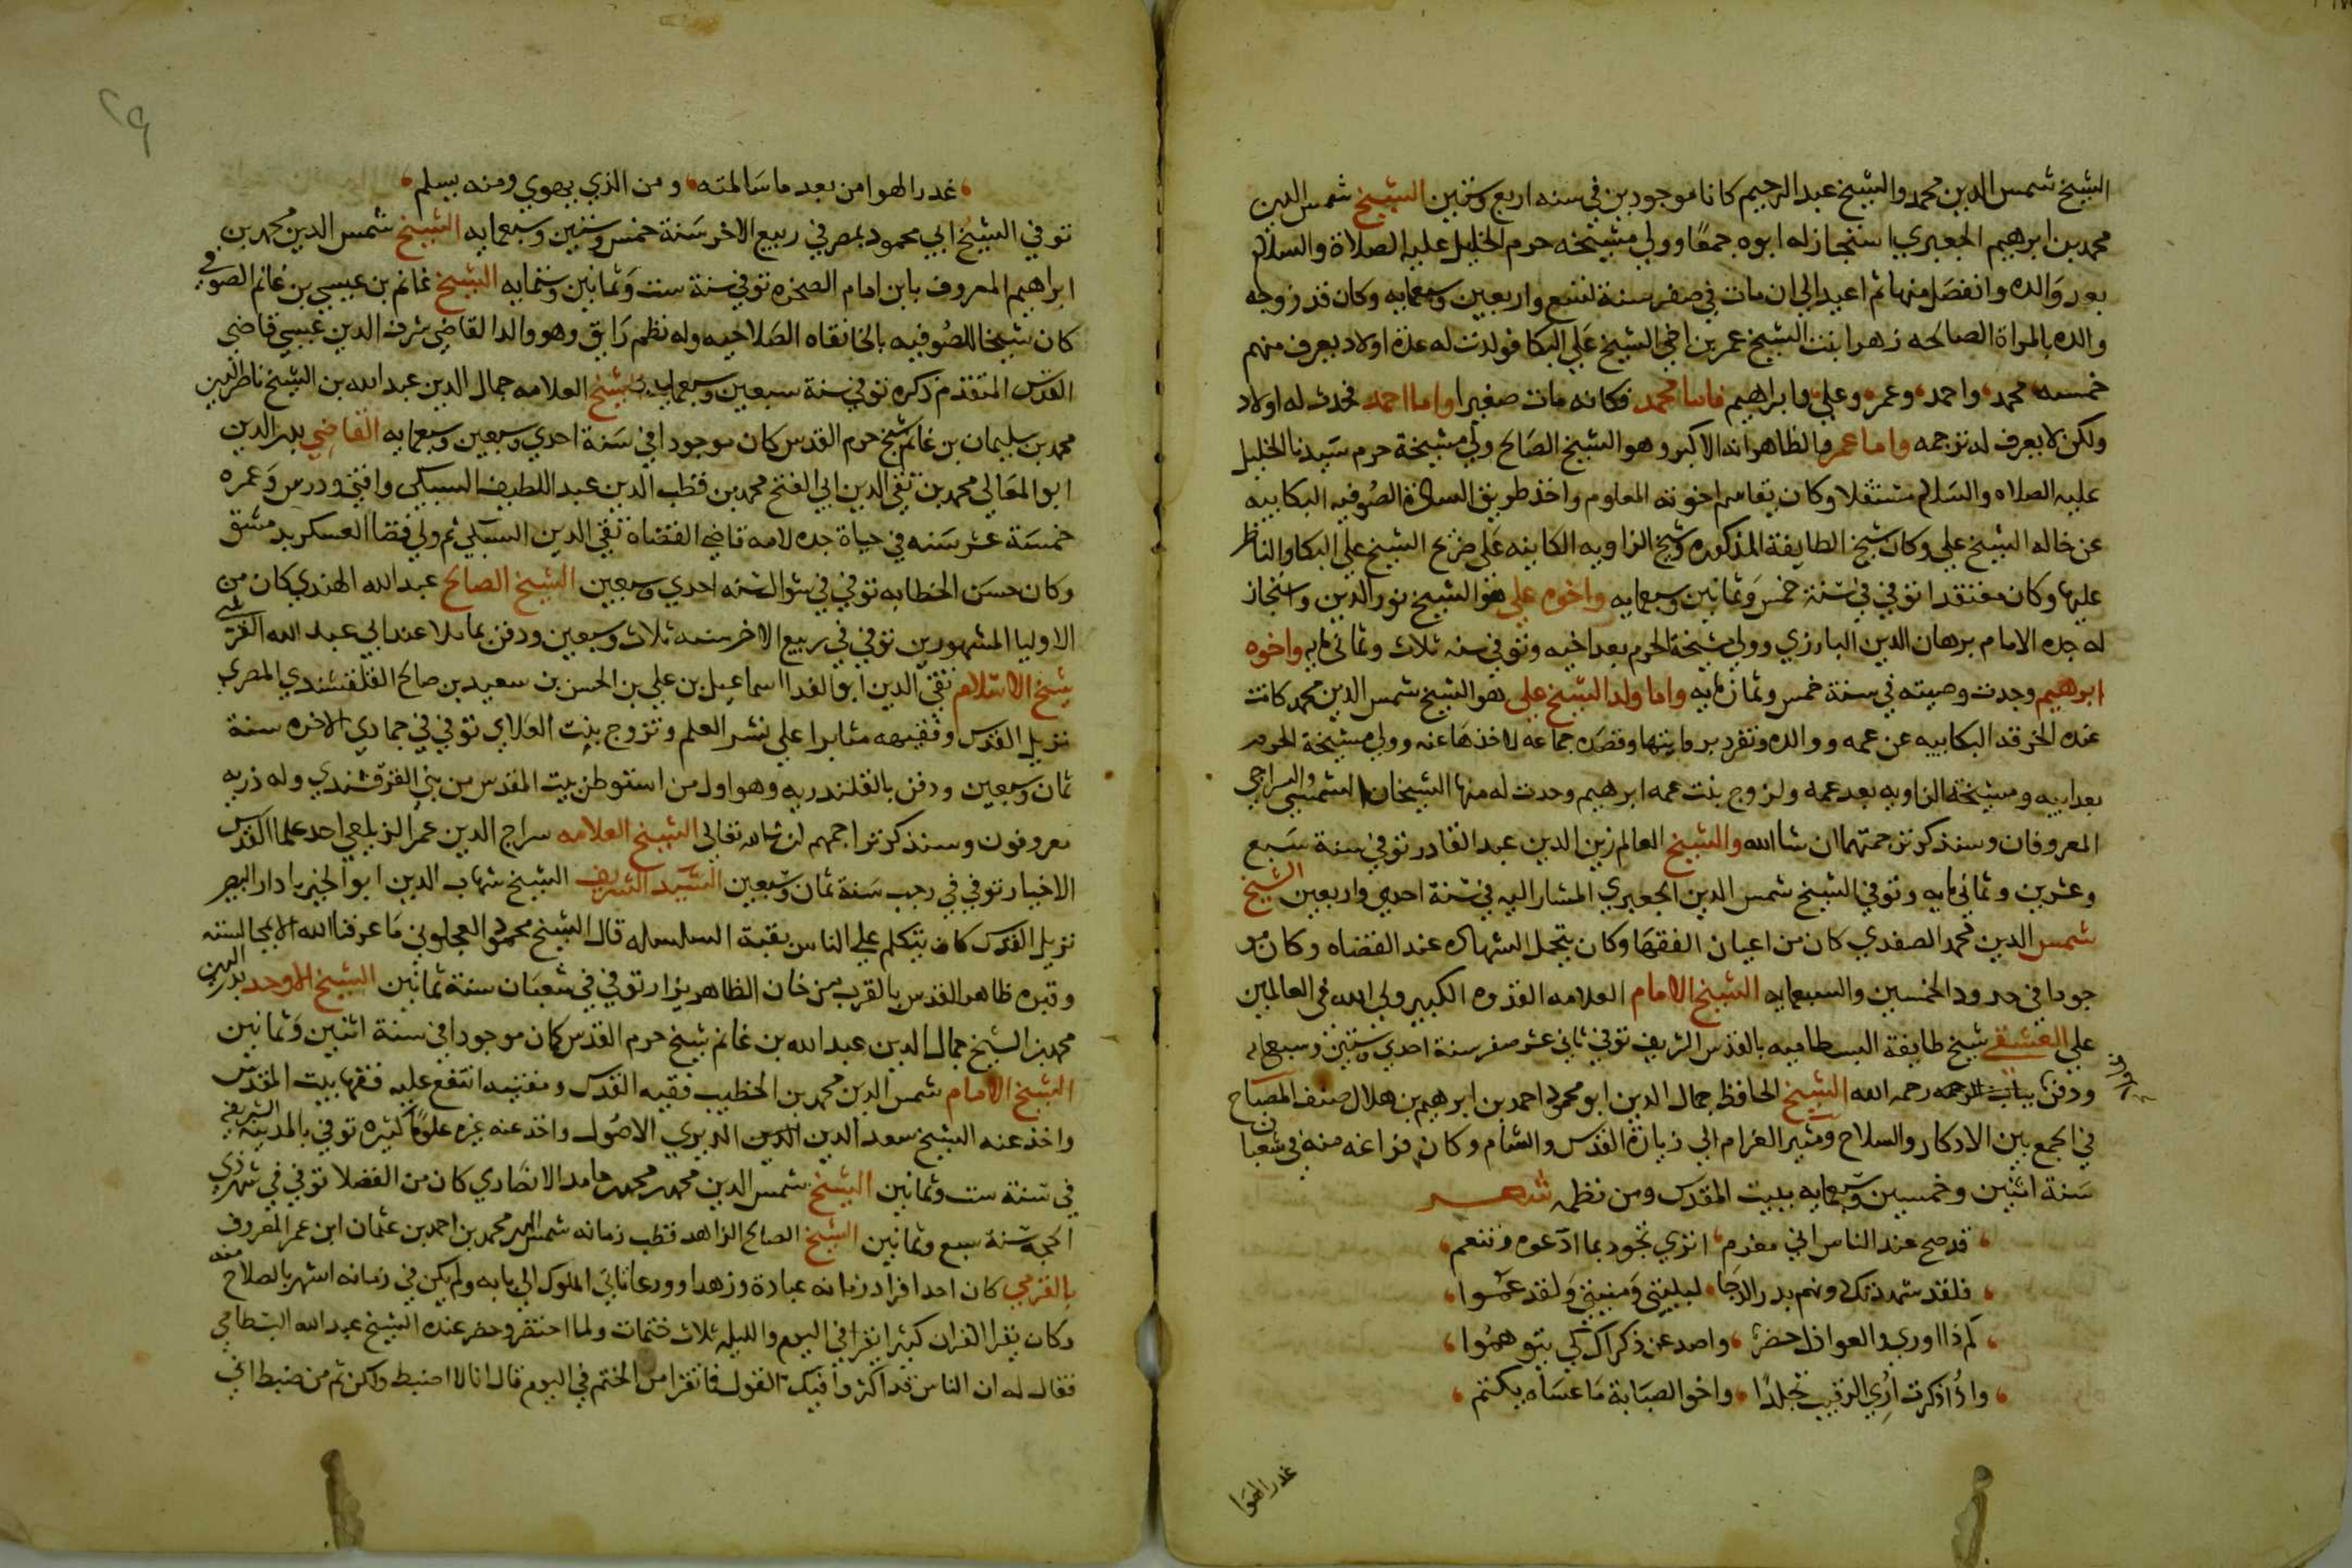 الشيخ شمس الدين محمد والشيخ عبد الرحيم كانا موجودين في سنه اربع وستين الشيخ شمس الدين
محمد بن ابرهيم الجعبري استجاز له ابوه جمعا وولي مشيخه حرم الخليل عليه الصلاة والسلام
بعد والده وانفصل منها ثم اعيد الي ان مات في صفر سنة تسع واربعين وسبعمايه وكان قد زوجه
والده بالمراة الصالحه زهرا بنت الشيخ عمر بن اخي الشيخ علي البكا فولدت له عدة اولاد يعرف منهم
خمسه محمد واحمد وعمر وعلي وابراهيم فاما محمد فكانه مات صغيرا واما احمد فحدث له اولاد
ولكن لا يعرف له ترجمه واما عمر فالظاهر انه الاكبر وهو الشيخ الصالح ولي مشيخة حرم سيدنا الخليل
عليه الصلاه والسلام مستقلا وكان يقاسم اخوته المعلوم واخذ طريق السادة الصوفيه البكاييه
عن خاله الشيخ علي وكان شيخ الطايفة المذكوره وشيخ الزاويه الكاينه على ضريح الشيخ علي البكا والناظر
عليها وكان معتقدا توفي في سنة خمس وثمانين وسبعمايه واخوه علي هو الشيخ نور الدين واستجاز
له جده الامام برهان الدين البارزي وولي مشيخة الحرم بعد اخيه وتوفي سنه ثلاث وثماني مايه واخوه
ابرهيم وجدت وصيته في سنة خمس وثمان مايه واما ولد الشيخ علي فهو الشيخ شمس الدين محمد كانت
عنده الخرقه البكاييه عن عمه ووالده وتفرد بروايتها وقصده جماعه لاخذها عنه وولي مشيخة الحرم
بعد ابيه ومشيخة الزاويه بعد عمه وتزوج بنت عمه ابرهيم وحدث له منها الشيخان الشمسي والسراجي
المعروفان وسنذكر ترجمتهما ان شا الله والشيخ العالم زين الدين عبد القادر توفي سنة سبع
وعشرين وثماني مايه وتوفي الشيخ شمس الدين الجعبري المشار اليه في سنة احدي واربعين الشيخ
شمس الدين محمد الصفدي كان من اعيان الفقها وكان يتحمل الشهادة عند القضاه وكان مو
جودا في حدود الخمسين والسبعمايه الشيخ الامام العلامه القدوه الكبير ولي الله في العالمين
علي العشقي شيخ طايفة البسطاميه بالقدس الشريف توفي ثاني عشر صفر سنة احدي وستين وسبعمايه
ودفن بباب الرحمه رحمه الله الشيخ الحافظ جمال الدين ابو محمود احمد بن ابرهيم بن هلال صنف المصباح
في الجمع بين الاذكار والسلاح ومثير الغرام الي زيارة القدس والشام وكان فراغه منه في شعبان
سنة اثنين وخمسين وسبعمايه ببيت المقدس ومن نظمه شعر
قد صح عند الناس اني مغرم اتري تجود بما ادعوه وتنعم
فلقد شهدتك ونم بدر الدجا لبليتي ومنيتي ولقد عموا
كم ذا اوري والعواذل حضر واصد عن ذكراك كي يتوهموا
واذا ذكرت اري الرقيب تجلدا واخو الصبابة ما عساه يكتم
غدر الهوا
غدر الهوا من بعد ما سالمته ومن الذي يهوي ومنه يسلم
توفي الشيخ ابي محمود بمصر في ربيع الاخر سنة خمس وستين وسبعمايه الشيخ شمس الدين محمد بن
ابراهيم المعروف بابن امام الصخره توفي سنة ست وثمانين وستمايه الشيخ غانم بن عيسي بن غانم الصوفي
كان شيخا للصوفيه بالخانقاه الصلاحيه وله نظم رايق وهو والد القاضي شرف الدين عيسي قاضي
القدس المتقدم ذكره توفي سنة سبعين وسبعمايه الشيخ العلامه جمال الدين عبد الله بن الشيخ ناصر الدين
محمد بن سليمان بن غانم شيخ حرم القدس كان موجودا في سنة احدي وسبعين وسبعمايه القاضي بدر الدين
ابو المعالي محمد بن تقي الدين ابي الفتح محمد بن قطب الدين عبد اللطيف السبكي وافتي ودرس وعمره
خمسة عشر سنه في حياة جده لامه قاضي القضاه تقي الدين السبكي ثم ولي قضا العسكر بدمشق
وكان حسن الخطابه توفي في شوال سنه احدي وسبعين الشيخ الصالح عبد الله الهندي كان من
الاوليا المشهورين توفي في ربيع الاخر سنه ثلاث وسبعين ودفن بماملا عند ابي عبد الله القرشي
شيخ الاسلام تقي الدين ابو الفدا اسماعيل بن علي بن الحسن بن سعيد بن صالح القلقشندي المصري
نزيل القدس وفقيهه مثابرا علي نشر العلم وتزوج بنت العلاي توفي في جمادي الاخره سنة
ثمان وسبعين ودفن بالقلندريه وهو اول من استوطن بيت المقدس من بني القرقشندي وله ذريه
معروفون وسنذكر تراجمهم ان شا الله تعالي الشيخ العلامه سراج الدين عمر الزيلعي احد علما القدس
الاخيار توفي في رجب سنة ثمان وسبعين السيد الشريف الشيخ شهاب الدين ابو الخير يا دار البير
نزيل القدس كان يتكلم علي الناس بقبة السلسله قال الشيخ محمود العجلوني ما عرفنا الله الا بمجالسته
وقبره ظاهر القدس بالقرب من خان الظاهر يزار توفي في شعبان سنة ثمانين الشيخ الاوحد بدر الدين
محمد بن الشيخ جمال الدين عبد الله بن غانم شيخ حرم القدس كان موجودا في سنة اثنين وثمانين
الشيخ الامام شمس الدين محمد بن الخطيب فقيه القدس ومفتيه انتفع عليه فقها بيت المقدس
واخذ عنه الشيخ سعد الدين الديري الاصول واخذ عنه غيره علوما كثيره توفي بالمدينه الشريفه
في سنة ست وثمانين الشيخ شمس الدين محمد بن محمد بن حامد الانصاري كان من الفضلا توفي في شهر ذي
الحجه سنة سبع وثمانين الشيخ الصالح الزاهد قطب زمانه شمس الدين محمد بن احمد بن عثمان ابن عمر المعروف
بالقرمي كان احد افراد زمانه عبادة وزهدا وورعا تاتي الملوك الي بابه ولم يكن في زمانه اشهر بالصلاح منه
وكان يقرا القران كثيرا يقرا في اليوم والليله ثلاث ختمات ولما احتضر وحضر عنده الشيخ عبد الله البسطامي
فقال له ان الناس قد اكثروا فيك القول فاتقرا من الختم في اليوم قال انا لا اضبط ولكن ثم من ضبط اني